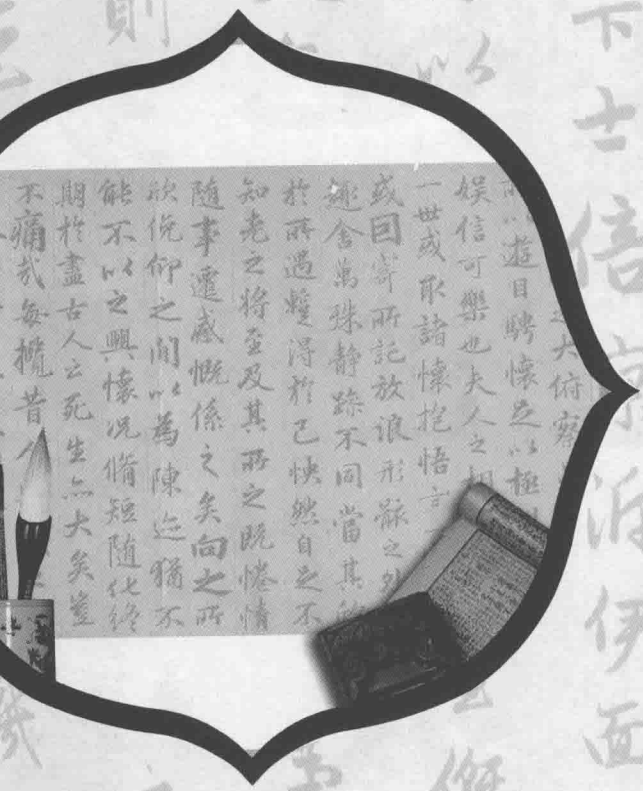 下士倍京泝伊面
以
則
大俯察
以遊目騁懷足以極
娛信可樂也夫人之相
一世或取諸懷抱悟言一
或因寄所託放浪形骸之外
趣舍萬殊靜躁不同當其
於所遇蹔得於己怏然自足不
知老之將至及其所之既惓情
隨事遷感慨係之矣向之所
欣俛仰之間以為陳迹猶不
能不以之興懷況脩短隨化終
期於盡古人云死生亦大矣豈
不痛哉每攬昔人